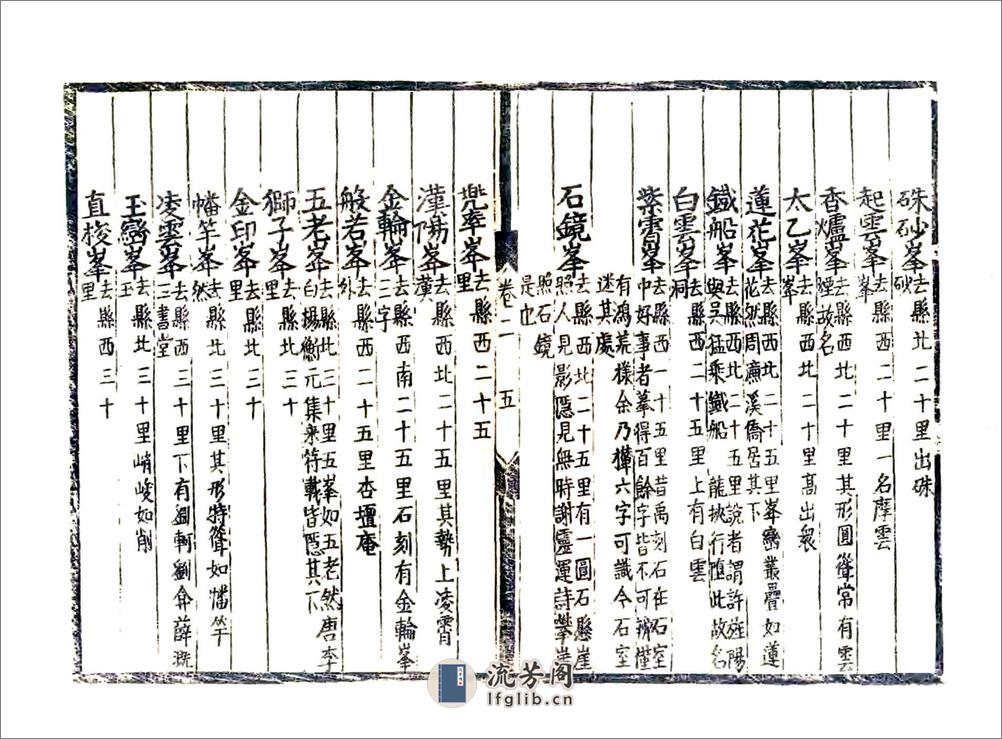 硃砂峯去縣北二十里出硃
砂
起雲峯去縣西二十里一名摩雲
峯
香爐峯去縣西北二十里其形圓聳常有雲
煙故名
太乙峯去縣西北二十里高出衆
峯
蓮花峯去縣西北二十五里峯巒叢疊如蓮
花然周濂溪僑居其下
鐵船峯去縣西北二十五里說者謂許旌陽
與吳猛乘鐵船龍挾行堕此故名
白雲峯去縣西二十五里上有白雲
祠
紫霄峯去縣西一十五里昔禹刻石在石室
中好事者摹得百餘字皆不可辨惟
有鴻荒樣余乃攆六字可識今石室
迷其處
石鏡峯去縣西北二十五里有一圓石懸崖
照人見影隱見無時謝靈運詩攀崖
照石鏡
是也
卷二 五
兜率峯去縣西二十五
里
漢陽峯去縣西北二十五里其勢上凌霄
漢
金輪峯去縣西南二十五里石刻有金輪峯
三字
般若峯去縣西二十五里杏壇庵
外
五老峯去縣北三十里五峯如五老然唐李
白楊衡元集來符載皆隱其下
獅子峯去縣北三十
里
金印峯去縣北三十
里
幡竿峯去縣北三十里其形特聳如幡竿
然
凌雲峯去縣西三十里下有劉軻劉弇薛溉
三書堂
玉巒峯去縣北三十里峭峻如削
玉
直梭峯去縣西三十
里
流芳阁
lfglib.cn